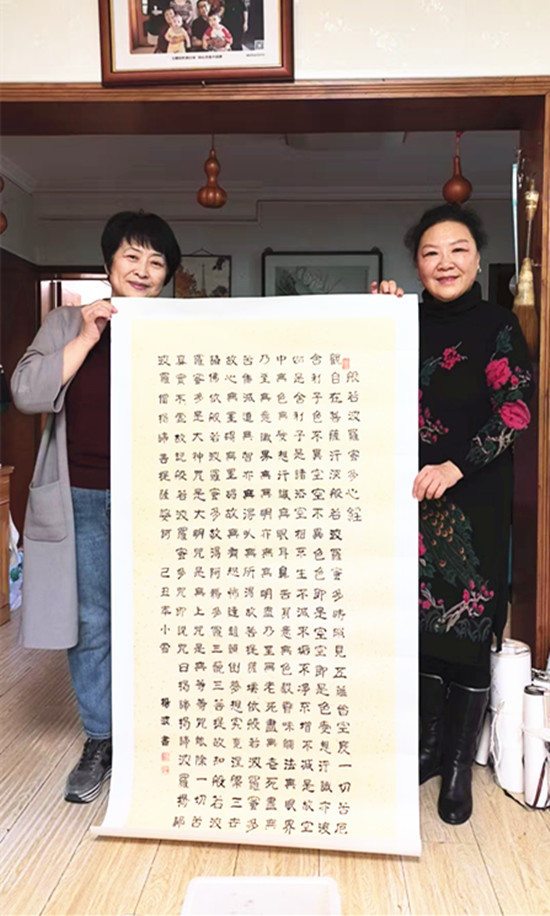 般若波羅蜜多心經
觀自在菩薩行深般若波羅蜜多時照見五蘊皆空度一切苦厄
舍利子色不異空空不異色色即是空空即是色受想行識亦復
如是舍利子是諸法空相不生不滅不垢不淨不增不減是故空
中無色無受想行識無眼耳鼻舌身意無色聲香味觸法無眼界
乃至無意識界無無明亦無無明盡乃至無老死亦無老死盡無
苦集滅道無智亦無得以無所得故菩提薩埵依般若波羅蜜多
故心無罣礙無罣礙故無有恐怖遠離顛倒夢想究竟涅槃三世
諸佛依般若波羅蜜多故得阿耨多羅三藐三菩提故知般若波
羅蜜多是大神咒是大明咒是無上咒是無等等咒能除一切苦
真實不虛故說般若波羅蜜多咒即說咒曰揭諦揭諦波羅揭諦
波羅僧揭諦菩提薩婆訶 己丑年小雪 楊 書